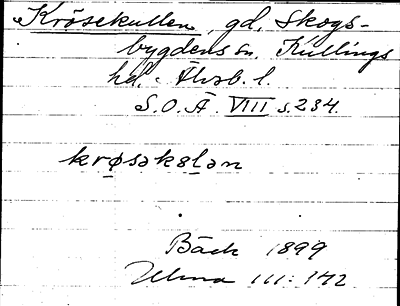 Krösekullen, gd, Skogs-
bygdens sn, Kullings
hd. Älvsb. l.
S.O.Ä VIII s. 234.
krøsəkələn
Bäck 1899
Ulma 111:142